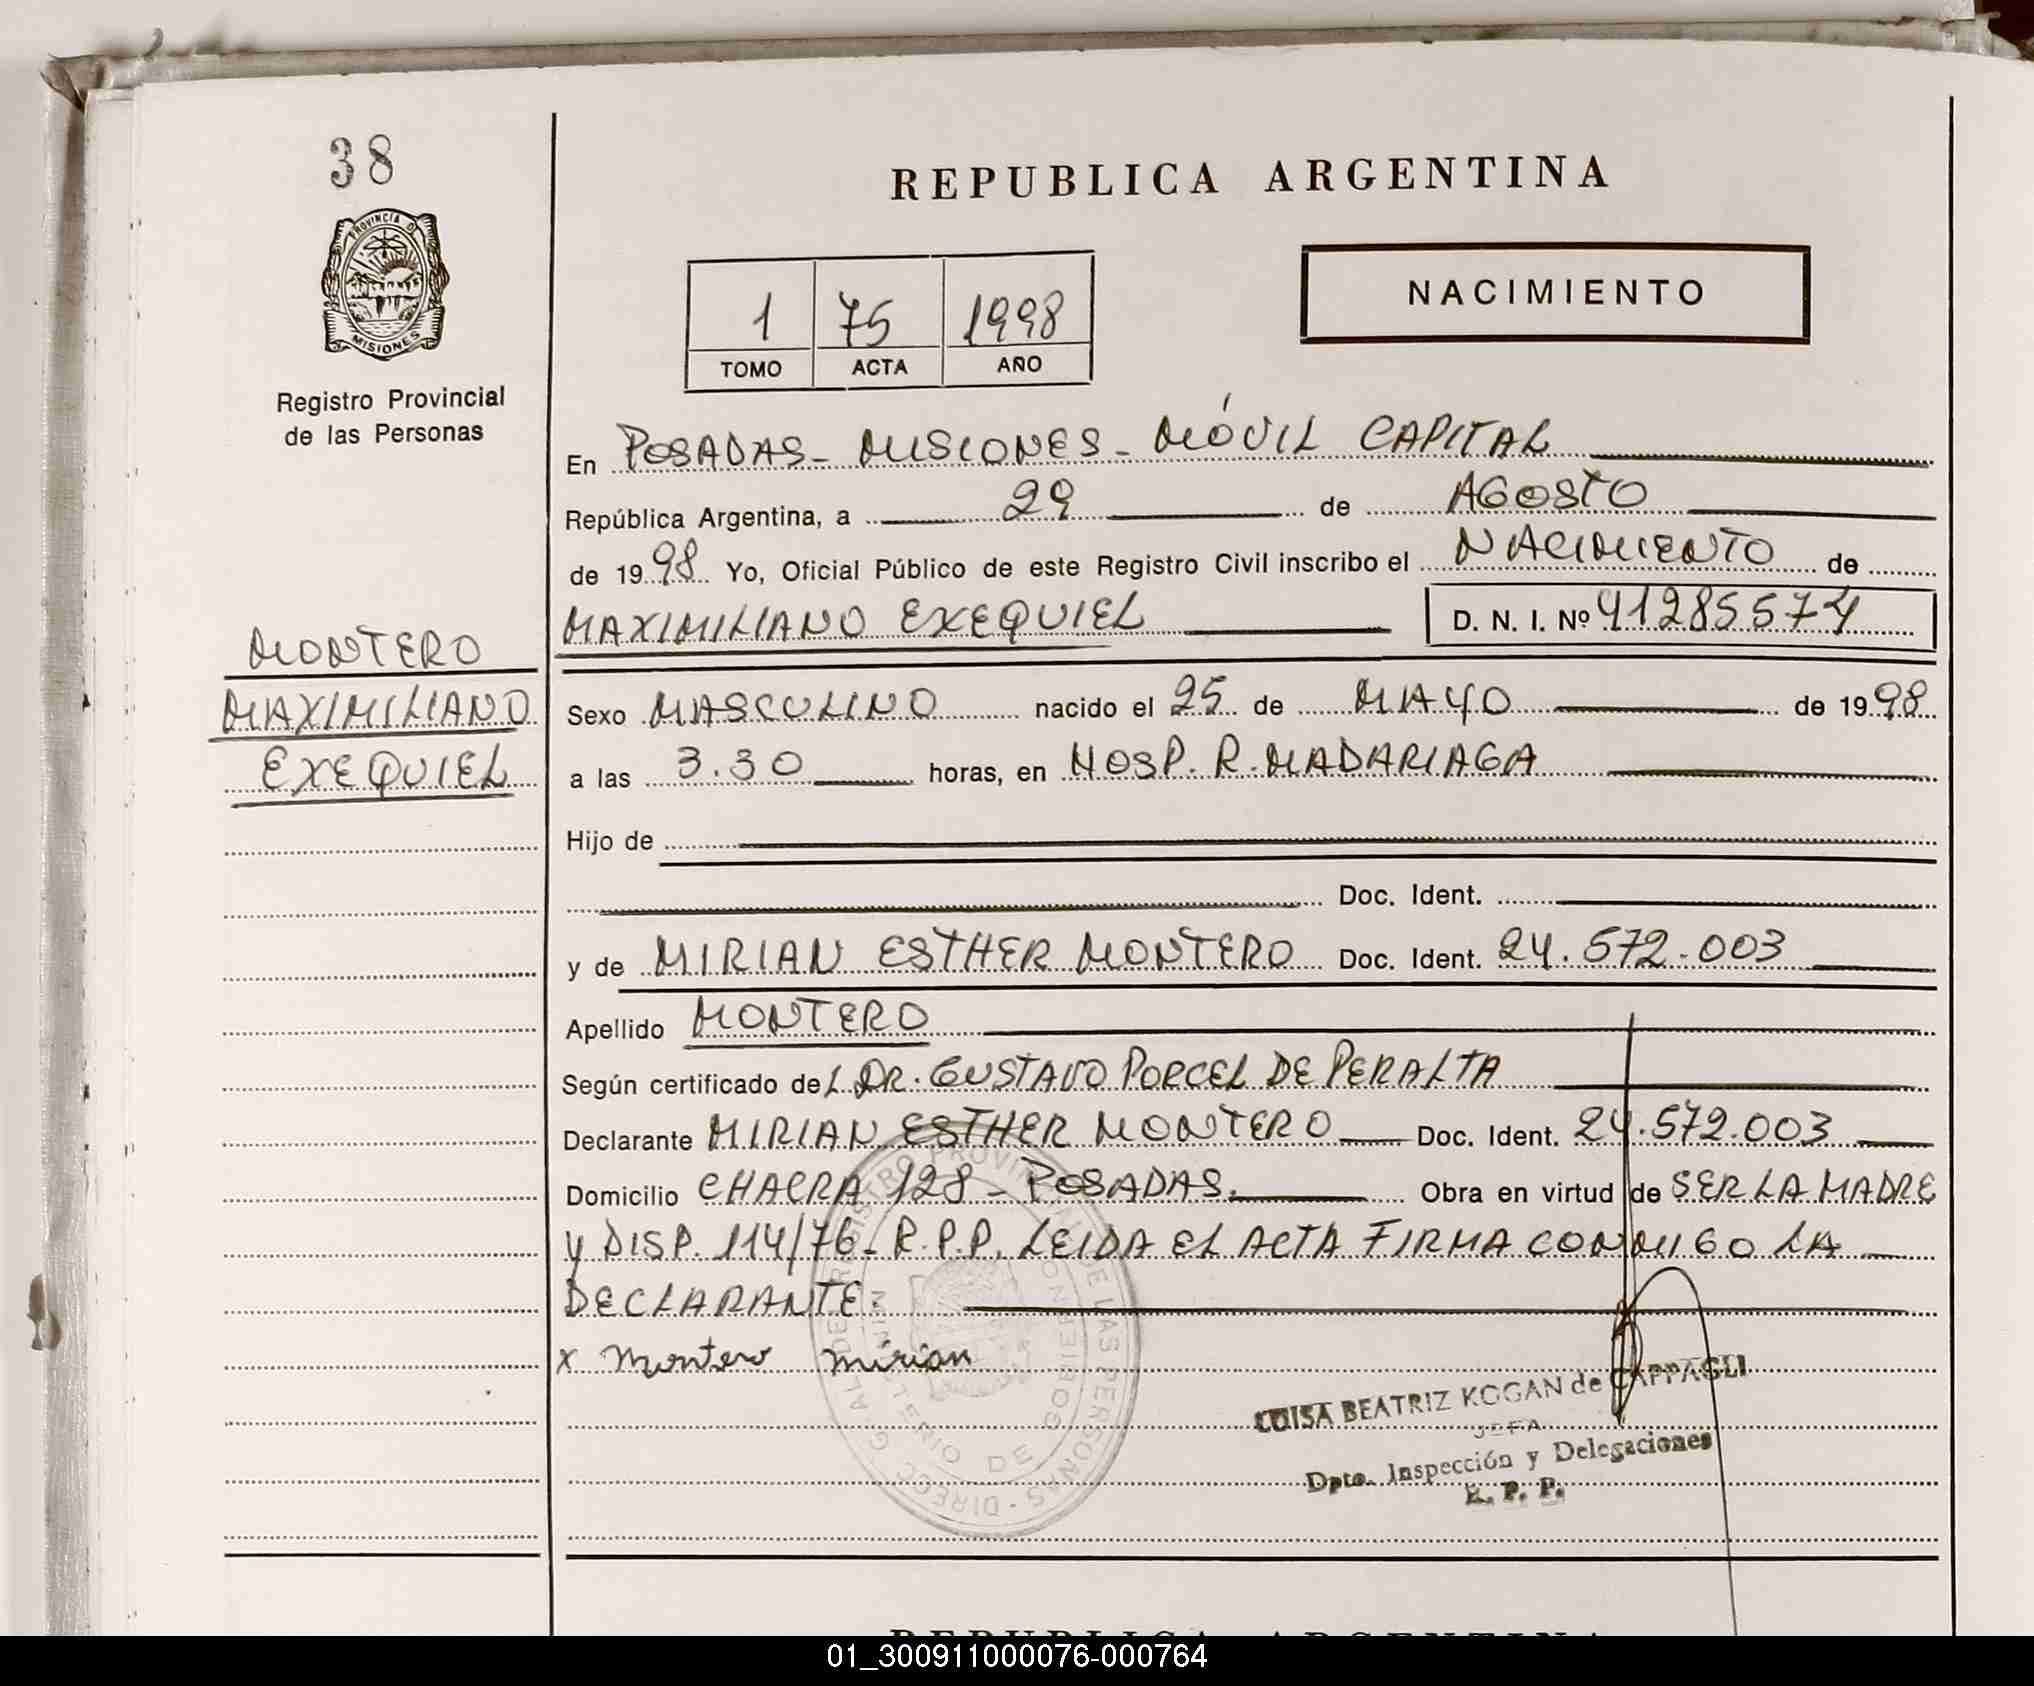 38
PROVINCIA D
MISIONES
Registro Provincial
de las Personas
MONTERO
MAXIMILIANO
EXEQUIEL
REPUBLICA ARGENTINA
NACIMIENTO
1 75 1998
TOMO ACTA AÑO
En POSADAS - MISIONES - MÓVIL CAPITAL
República Argentina, a 29 de AGOSTO
de 1998 Yo, Oficial Público de este Registro Civil inscribo el NACIMIENTO de
MAXIMILIANO EXEQUIEL D. N. I. Nº 41285574
Sexo MASCULINO nacido el 25 de MAYO de 1998
a las 3.30 horas, en HOSP. R. MADARIAGA
Hijo de
Doc. Ident.
y de MIRIAN ESTHER MONTERO Doc. Ident. 24.572.003
Apellido MONTERO
Según certificado del DR. GUSTAVO PORCEL DE PERALTA
Declarante MIRIAN ESTHER MONTERO Doc. Ident. 24.572.003
Domicilio CHACRA 128 - POSADAS. Obra en virtud de SER LA MADRE
y DISP. 114/76 - R.P.P. LEIDA EL ACTA FIRMA CONMIGO LA
DECLARANTE.
x Montero Mirian
LUISA BEATRIZ KOGAN de CAPPAGLI
JEFA
Dpto. Inspección y Delegaciones
R. P. P.
REPUBLICA ARGENTINA
01_300911000076-000764